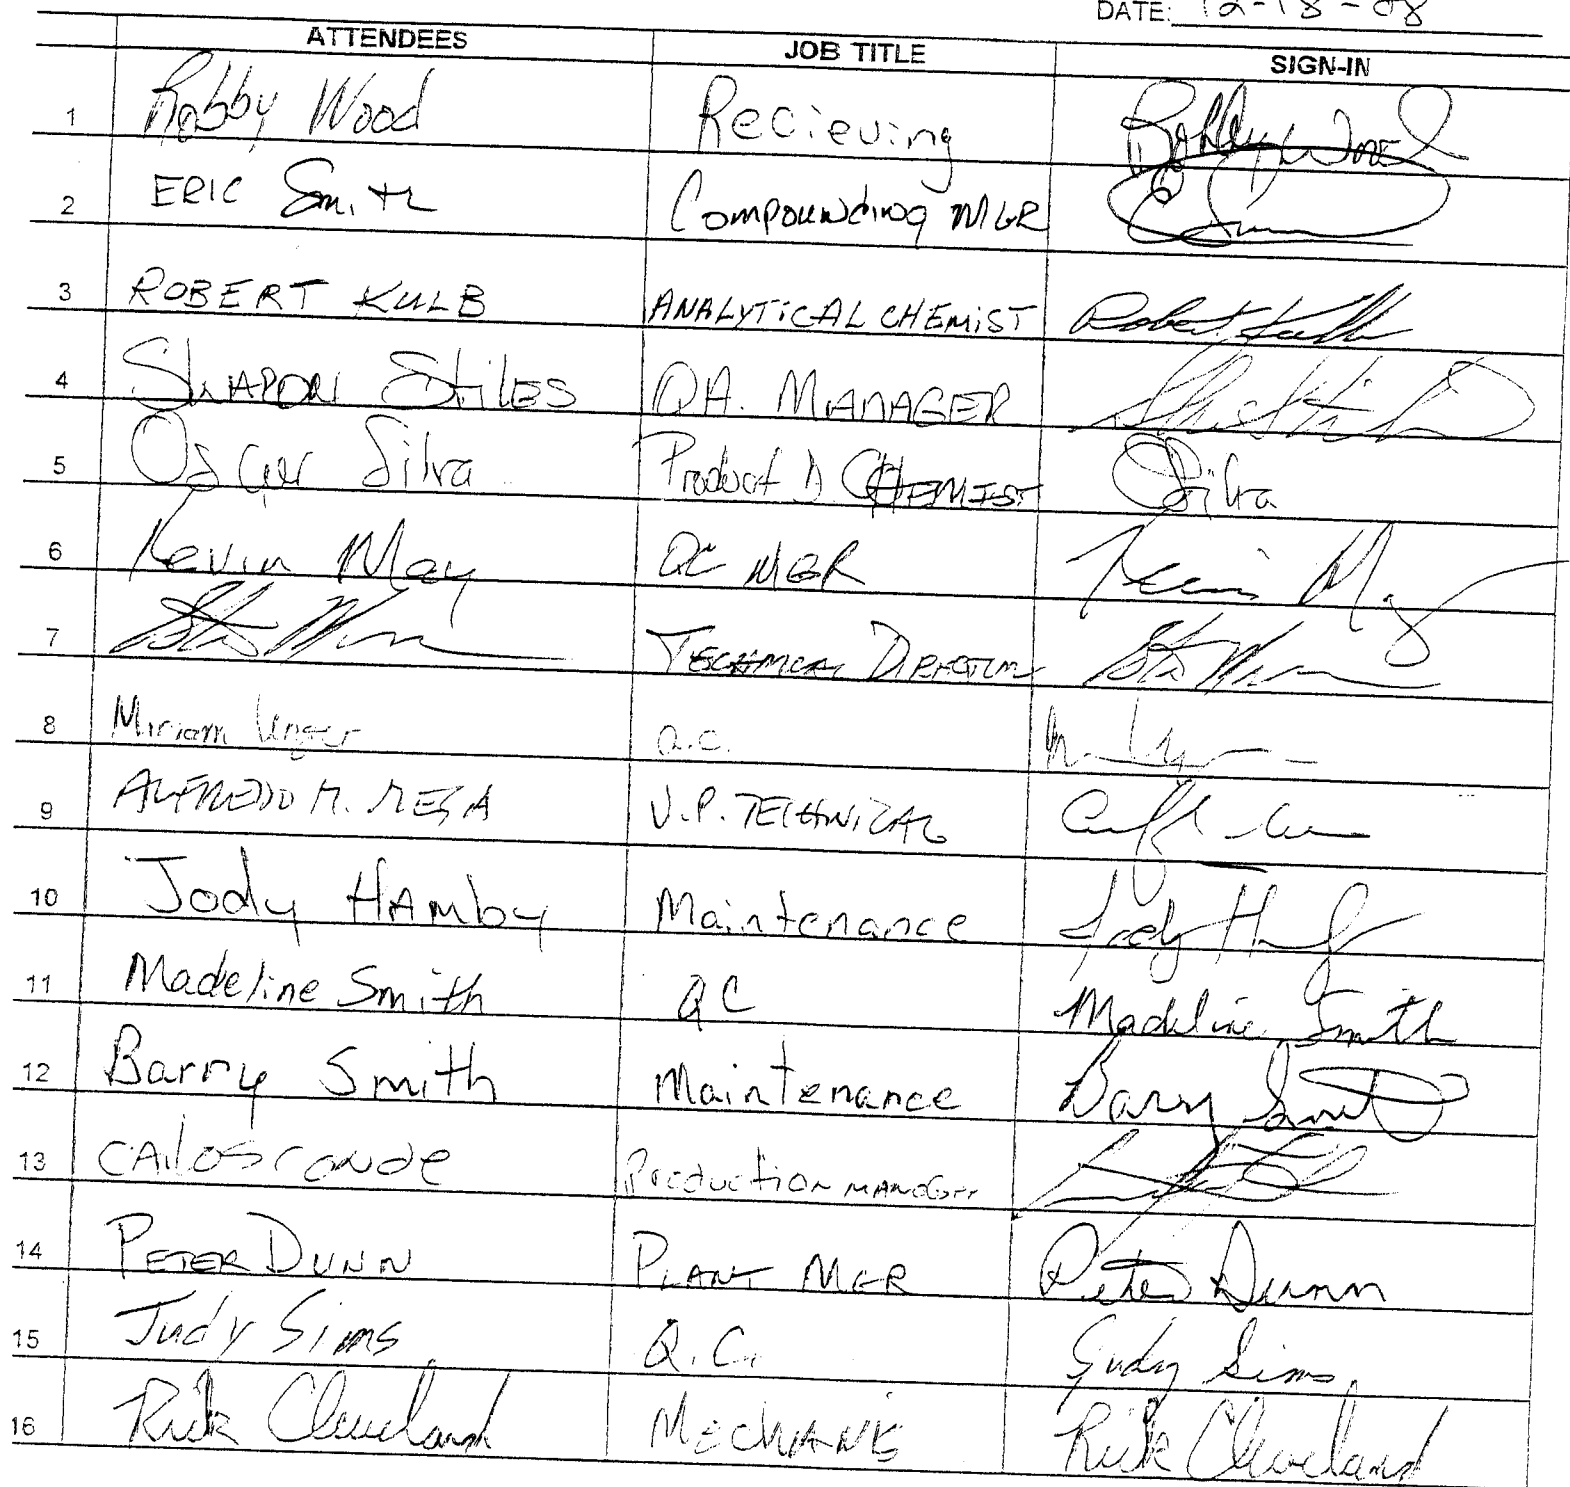 DATE: 12-18-08
ATTENDEES JOB TITLE SIGN-IN
1 Robby Wood Recieving
2 ERIC Smith Compounding MGR
3 ROBERT KULB ANALYTICAL CHEMIST Robert Kulb
4 SHARON StiLES QA. MANAGER
5 Oscar Silva Product D CHEMIST OSilva
6 Kevin May QC MGR Kevin May
7 TECHNICAL DIRECTOR
8 Miriam Unger Q.C.
9 ALFREDO M. MESA V.P. TECHNICAL
10 Jody HAmby Maintenance Jody
11 Madeline Smith QC Madeline Smith
12 Barry Smith Maintenance Barry Smith
13 CARLOS CONDE Production MANAGER
14 PETER DUNN PLANT MGR Peter Dunn
15 Judy Sims Q.C. Judy Sims
16 Rick Cleveland Rick Cleveland